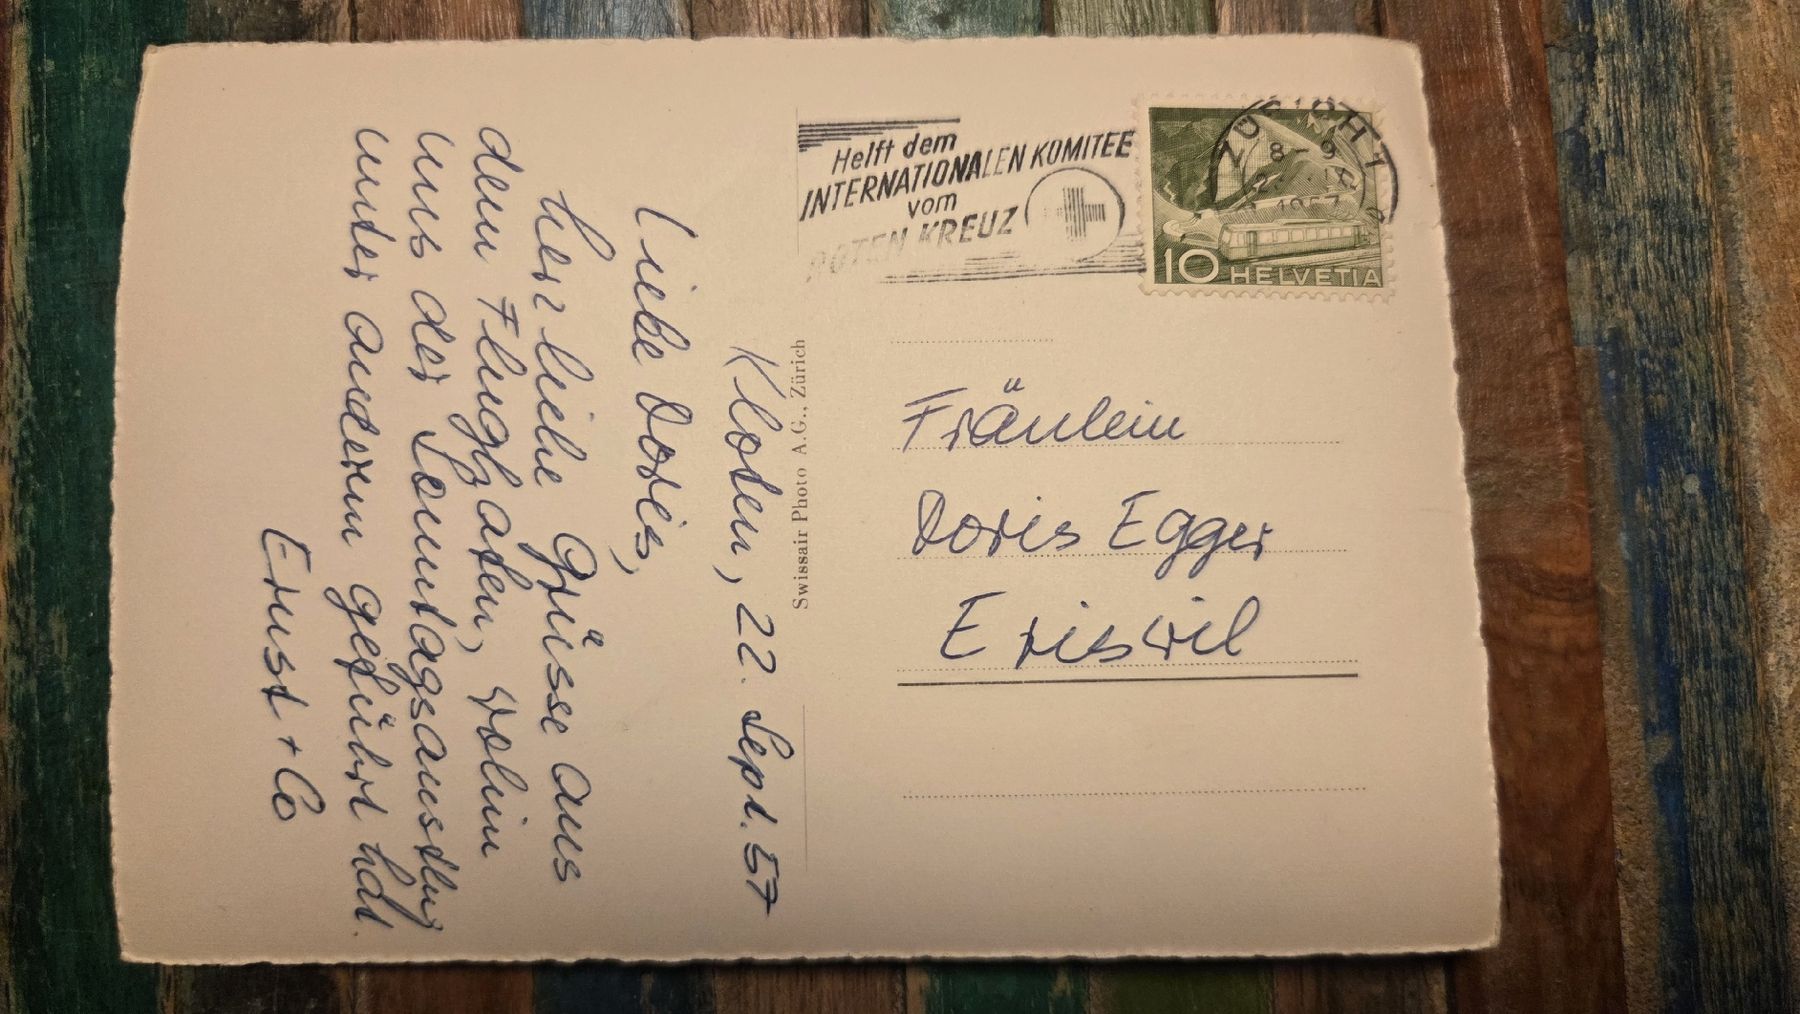 Kloten, 22. Sept. 57
Liebe Doris,
herzliche Grüsse aus
dem Flughafen, wohin
uns der Sonntagsausflug
unter anderem geführt hat.
Ernst + Co
Swissair Photo A.G., Zürich
Helft dem
INTERNATIONALEN KOMITEE
vom
ROTEN KREUZ
ZÜRICH 1
8-9
1957
10 HELVETIA
Fräulein
Doris Egger
Eriswil